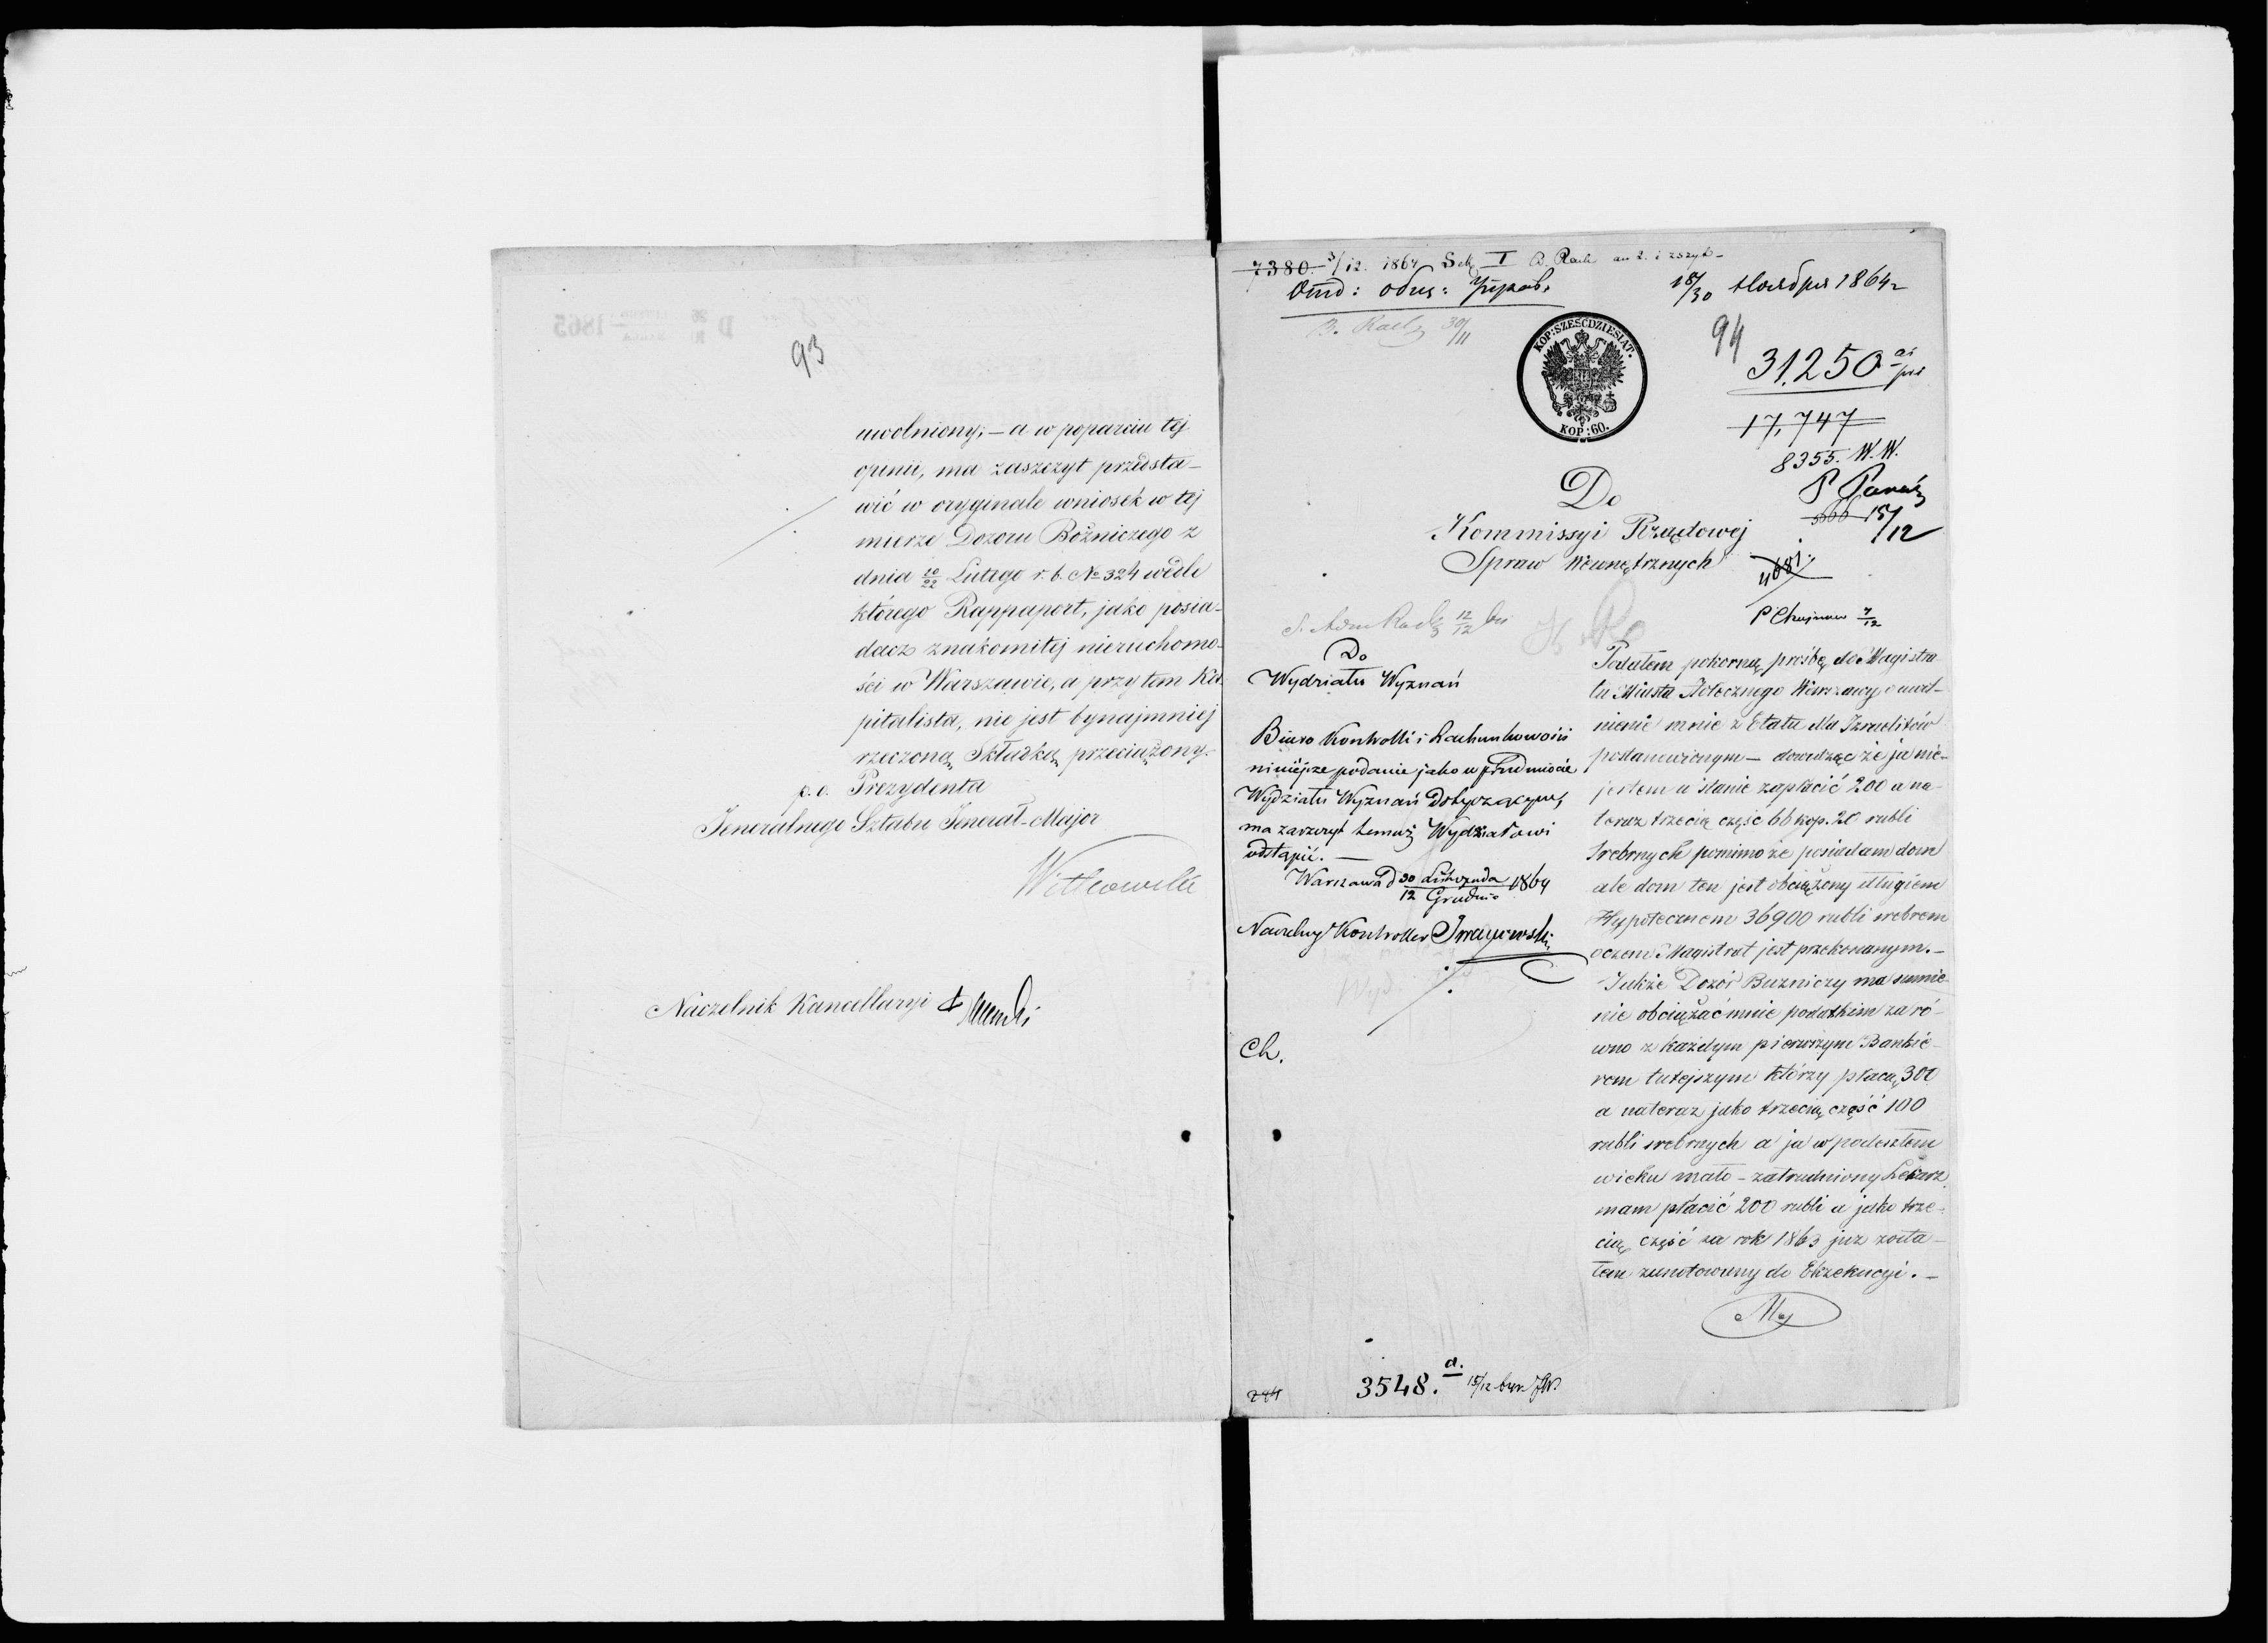 93
uwolniony; – a w poparciu tej
opinii, ma zaszczyt przedsta-
wić w oryginale wniosek w tej
mierze Dozoru Bóżniczego z
dnia 10/22 Lutego r. b. № 324 wedle
którego Rappaport, jako posia-
dacz znakomitej nieruchomo-
ści w Warszawie, a przytem Ka-
pitalista, nie jest bynajmniej
rzeczoną Składką przeciążony.
p. o. Prezydenta
Jenerálnego Sztabu Jenerał-Major
Witkowski
Naczelnik Kancellaryi
7380. 3/12. 1864 Sek I
Отд: общ: Управ.
18/30 Ноября 1864 г
30/11
94
KOP: SZEŚĆDZIESIAT.
KOP: 60.
31,250
17,747
8355. W. W.
15/12
Do
Kommissyi Rządowej
Spraw Wewnętrznych
4681.
P Chojnow 7/12
12/12
Do
Wydziału Wyznań
Biuro Kontrolli i Rachunkowości
niniejsze podanie jako w przedmiocie
Wydziału Wyznań dotyczącym,
ma zaszczyt temuż Wydziałowi
odstąpić. —
Warszawa d 30 Listopada / 12 Grudnia 1864
Naczelny Kontroller
Ch.
Podałem pokorną prośbę do Magistra-
tu Miasta Stołecznego Warszawy o uwol-
nienie mnie z Etatu dla Izraelitów
postanowionym – dowodząc że ja nie-
jestem w stanie zapłacić 200 a na-
teraz trzecią część 66 kop. 20 rubli
srebrnych pomimo że posiadam dom
ale dom ten jest obciążony długiem
Hypotecznem 36900 rubli srebrem
oczem Magistrat jest przekonanym. –
Jakże Dozór Buzniczy ma sumie-
nie obciążać mnie podatkim zaró-
wno z każdym pierwszym Bankie-
rem tutejszym którzy płacą 300
a nateraz jako trzecią część 100
rubli srebrnych a ja w podeszłem
wieku mało – zatrudniony Lekarz
mam płacić 200 rubli a jako trze-
cią część za rok 1863 już zosta-
łem zanotowany do Ekzekucyi. –
3548. d. 15/12